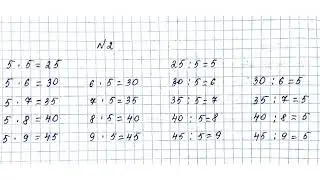 №2
5 · 5 = 25 25 : 5 = 5
5 · 6 = 30 6 · 5 = 30 30 : 5 = 6 30 : 6 = 5
5 · 7 = 35 7 · 5 = 35 35 : 5 = 7 35 : 7 = 5
5 · 8 = 40 8 · 5 = 40 40 : 5 = 8 40 : 8 = 5
5 · 9 = 45 9 · 5 = 45 45 : 5 = 9 45 : 9 = 5